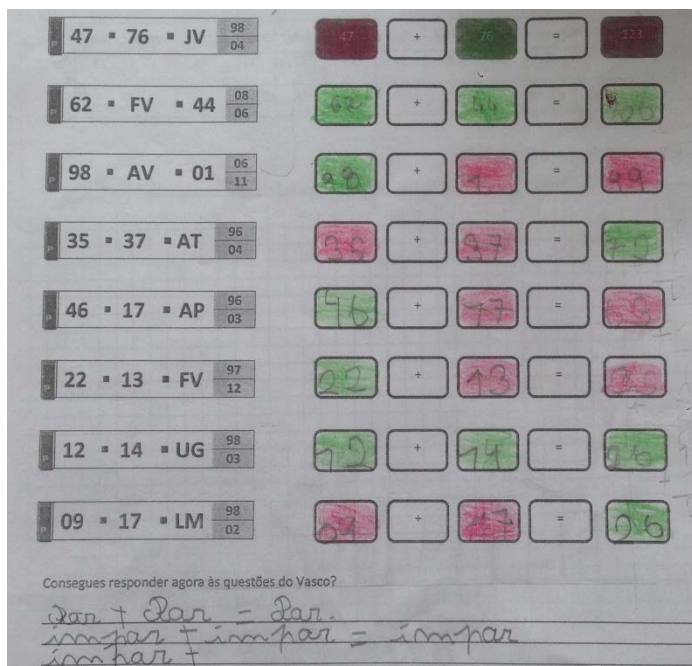 P 47 ▪ 76 ▪ JV 98 04 47 + 76 = 123
P 62 ▪ FV ▪ 44 08 06 62 + 44 =
P 98 ▪ AV ▪ 01 06 11 98 + 1 = 99
P 35 ▪ 37 ▪ AT 96 04 35 + 37 =
P 46 ▪ 17 ▪ AP 96 03 46 + 17 =
P 22 ▪ 13 ▪ FV 97 12 22 + 13 = 35
P 12 ▪ 14 ▪ UG 98 03 12 + 14 = 26
P 09 ▪ 17 ▪ LM 98 02 09 + 17 = 26
Consegues responder agora às questões do Vasco?
Par + Par = Par.
impar + impar = impar
impar +